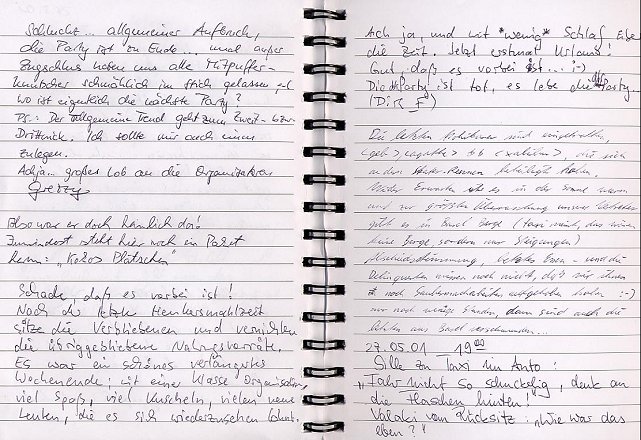 Schluchz... allgemeiner Aufbruch,
die Party ist zu Ende... und außer
Zugschluss haben uns alle Mitpuffer-
kutscher schmählich im Stich gelassen
wo ist eigentlich die nächste Party?
PS.: Der allgemeine Trend geht zum Zweit- bzw.
Drittnick. Ich sollte mir auch einen
zulegen.
Achja... großes Lob an die Organisatoren
Also war er doch heimlich da!
Zumindest steht hier noch ein Paket
"Kokos Plätzchen"
Schade, daß es vorbei ist!
Nach der letzten Henkersmahlzeit
sitze die Verbliebenen und vernichten
die übriggebliebene Nahrungsvorräte.
Es war ein schönes verlängertes
Wochenende; mit einer Klasse Organisation,
viel Spaß, viel Kuscheln, vielen neue
Leuten, die es sich wiederzusehen lohnt.
Ach ja, und mit *wenig* Schlaf
die Zeit. Jetzt erstmal Urlaub!
Gut, daß es vorbei ist... ;-)
Die Party ist tot, es lebe die Party.
(Dirk F)
Die letzten sind eingetroffen,
die sich
an dem Rennen beteiligt haben.
Wider Erwarten es in der Sonne warm
und zur größten Überraschung unserer
gibt es in Basel Berge (Taxi meint, das wären
keine Berge sondern nur Steigungen)
Abschiedsstimmung, letztes Essen - und die
Delinquenten wissen noch nicht, daß wir ihnen
noch haben :-)
nur noch wenige Stunden, dann sind auch die
letzten aus Basel verschwunden...
27.05.01 19⁰⁰
Sille zu Taxi im Auto:
"Fahr nicht so schuckelig, denk an
die Flaschen hinten!"
vom Rücksitz: "Wie war das
eben?"